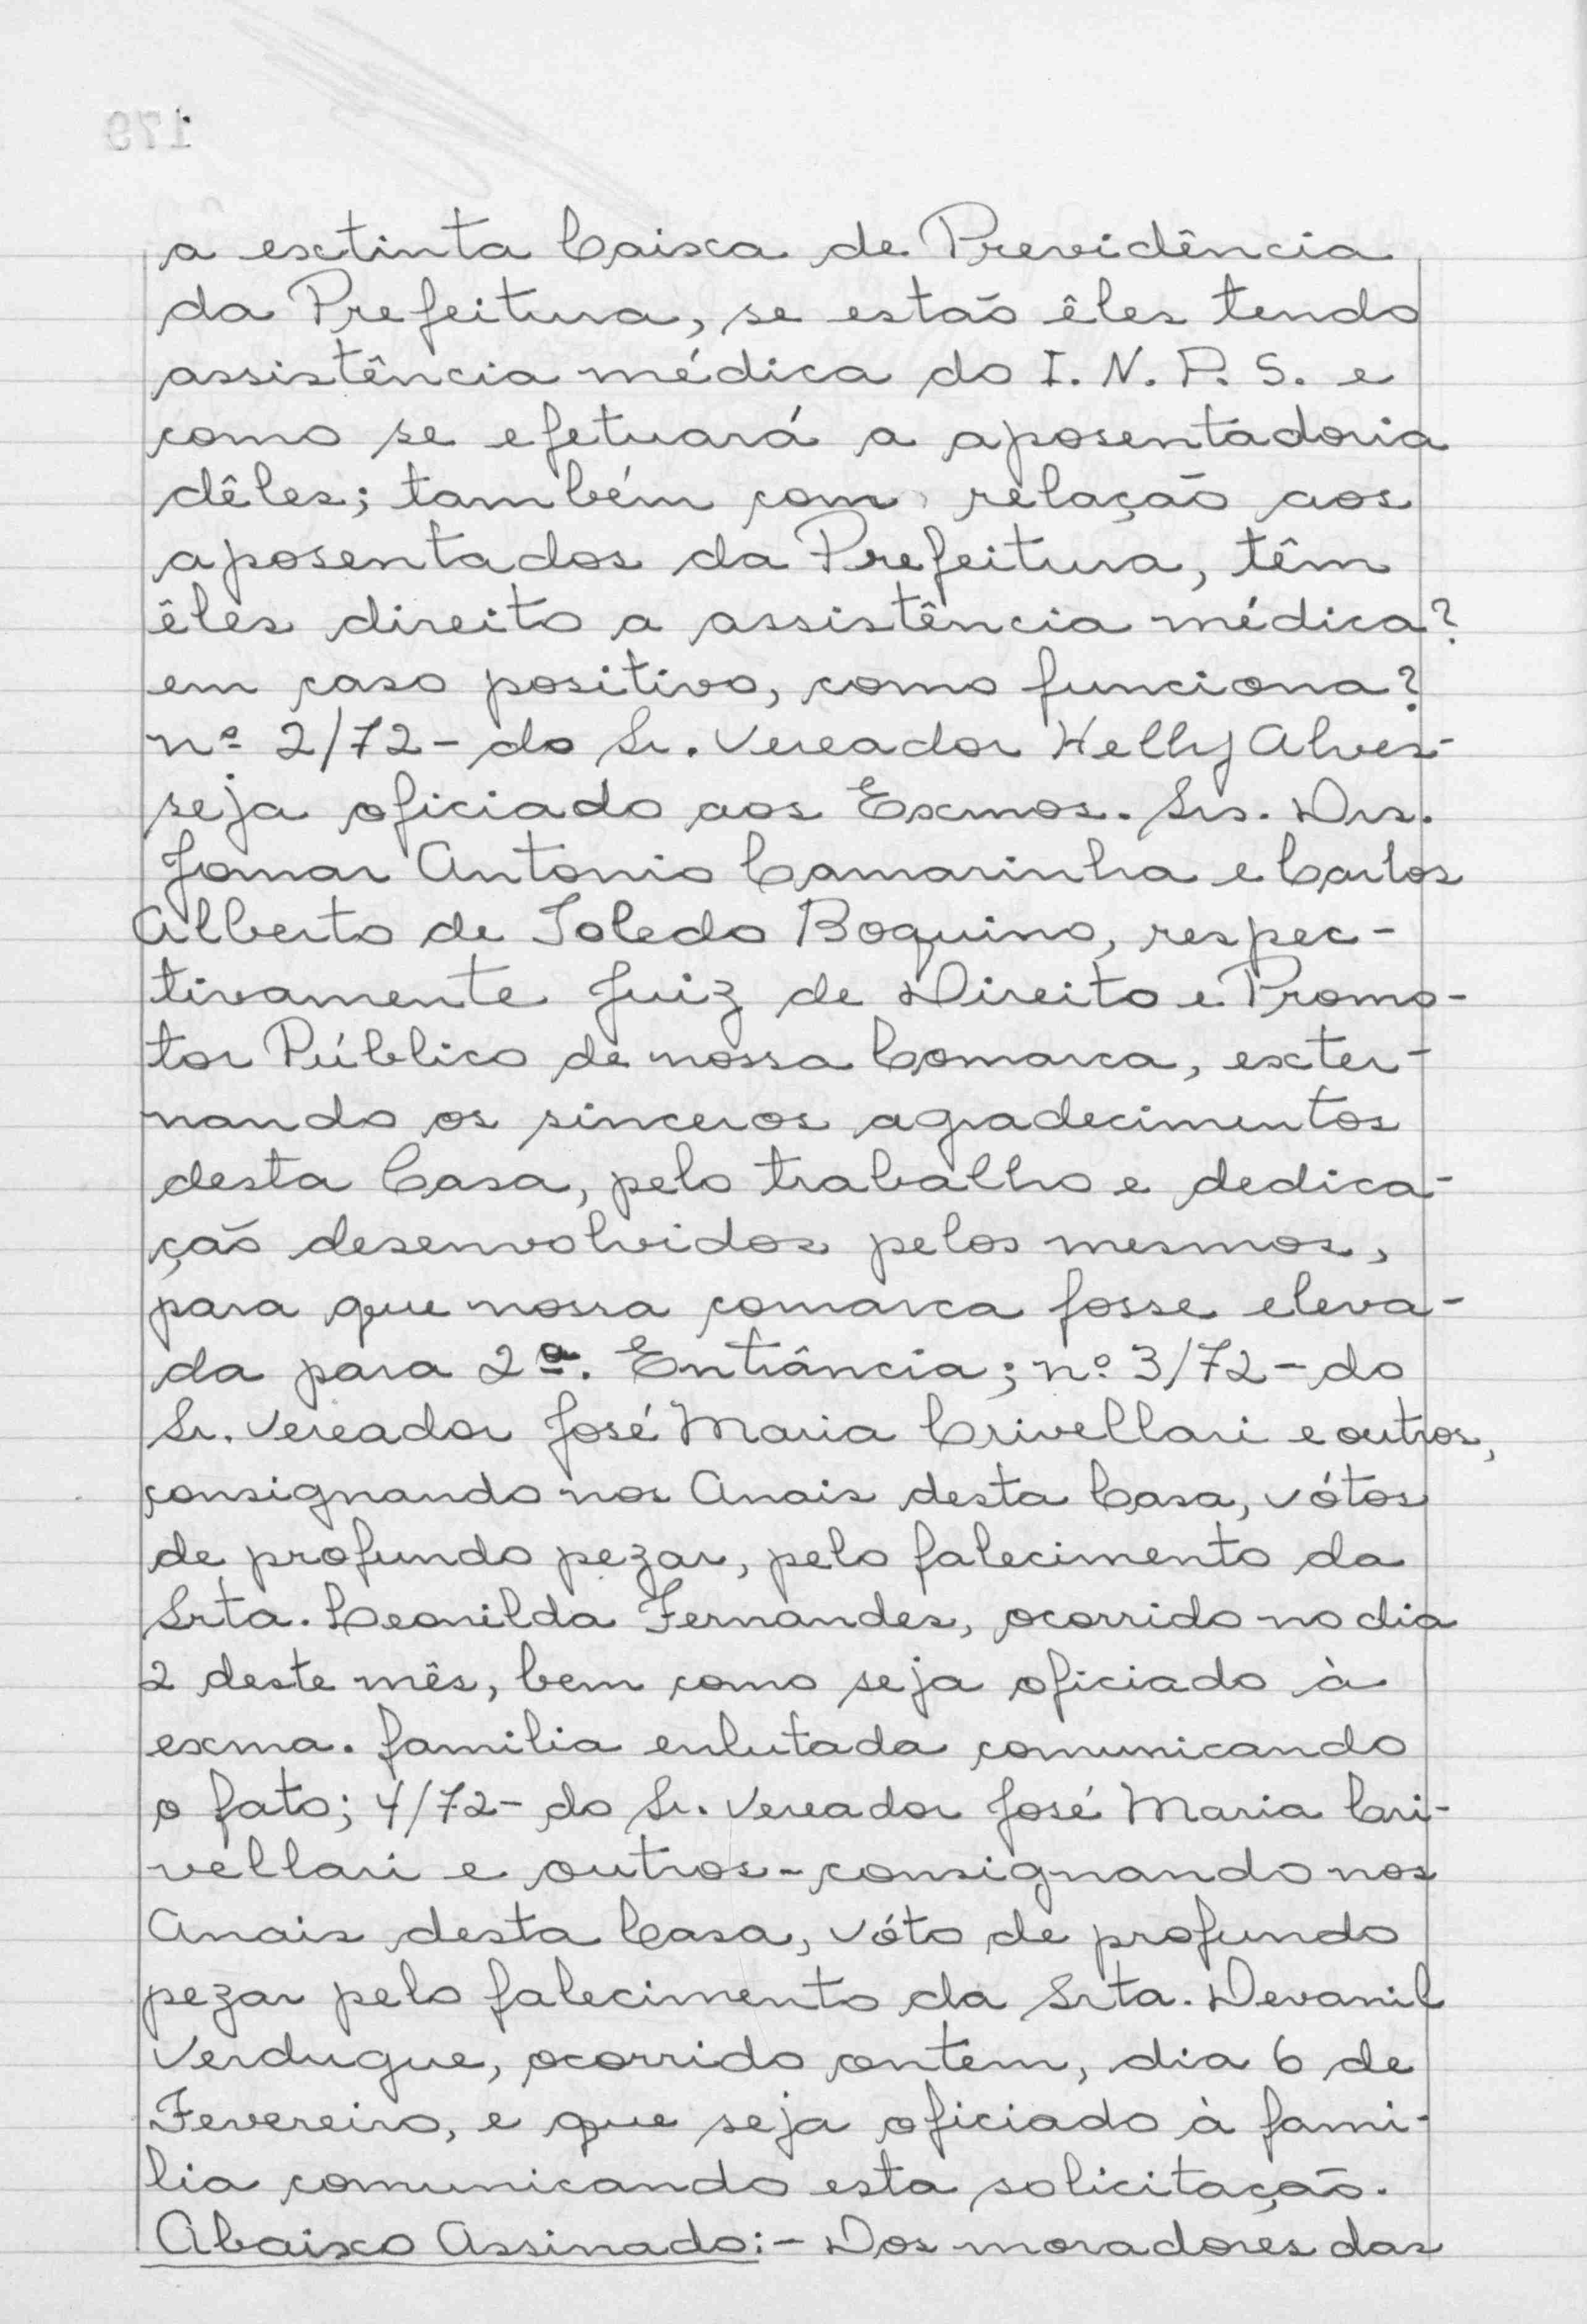 a extinta Caixa de Previdência
da Prefeitura, se estão êles tendo
assistência médica do I. N. P. S. e
como se efetuará a aposentadoria
dêles; também com relação aos
aposentados da Prefeitura, têm
êles direito a assistência médica?
em caso positivo, como funciona?
nº 2/72 - do Sr. Vereador Helly Alves -
seja oficiado aos Exmos. Srs. Drs.
Jomar Antonio Camarinha e Carlos
Alberto de Toledo Boquino, respec-
tivamente Juiz de Direito e Promo-
tor Público de nossa Comarca, exter-
nando os sinceros agradecimentos
desta Casa, pelo trabalho e dedica-
ção desenvolvidos pelos mesmos,
para que nossa comarca fosse eleva-
da para 2ª. Entrância; nº 3/72 - do
Sr. Vereador José Maria Crivellari e outros,
consignando nos Anais desta Casa, vótos
de profundo pezar, pelo falecimento da
Srta. Leonilda Fernandes, ocorrido no dia
2 deste mês, bem como seja oficiado à
exma. familia enlutada comunicando
o fato; 4/72 - do Sr. Vereador José Maria Cri-
vellari e outros - consignando nos
Anais desta Casa, vóto de profundo
pezar pelo falecimento da Srta. Devanil
Verdugue, ocorrido ontem, dia 6 de
Fevereiro, e que seja oficiado à fami-
lia comunicando esta solicitação.
Abaixo Assinado: - Dos moradores das